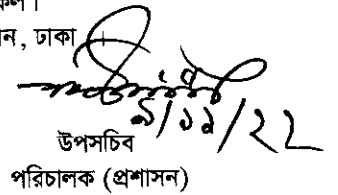 ন, ঢাকা
৯/১১/২২
উপসচিব
পরিচালক (প্রশাসন)